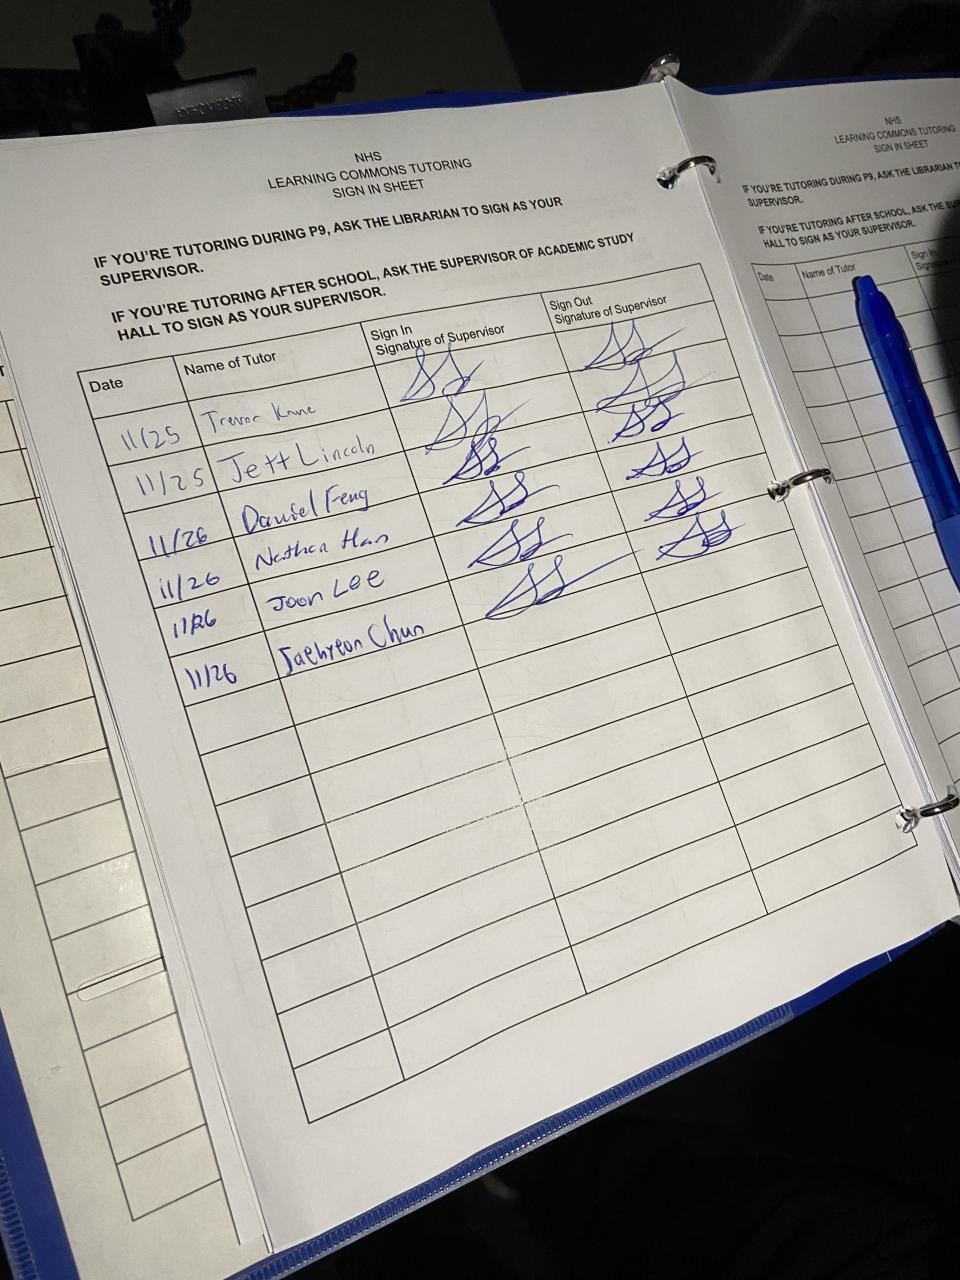 NHS
LEARNING COMMONS TUTORING
SIGN IN SHEET
IF YOU'RE TUTORING DURING P9, ASK THE LIBRARIAN TO SIGN AS YOUR
SUPERVISOR.
IF YOU'RE TUTORING AFTER SCHOOL, ASK THE SUPERVISOR OF ACADEMIC STUDY
HALL TO SIGN AS YOUR SUPERVISOR.
Date Name of Tutor Sign In Signature of Supervisor Sign Out Signature of Supervisor
11/25 Trevor Kane
11/25 Jett Lincoln
11/26 Daniel Feng
11/26 Nathan Han
11/26 Joon Lee
11/26 Jaehyeon Chun
NHS
LEARNING COMMONS TUTORING
SIGN IN SHEET
IF YOU'RE TUTORING DURING P9, ASK THE LIBRARIAN
SUPERVISOR.
IF YOU'RE TUTORING AFTER SCHOOL, ASK THE
HALL TO SIGN AS YOUR SUPERVISOR.
Date Name of Tutor Sign In